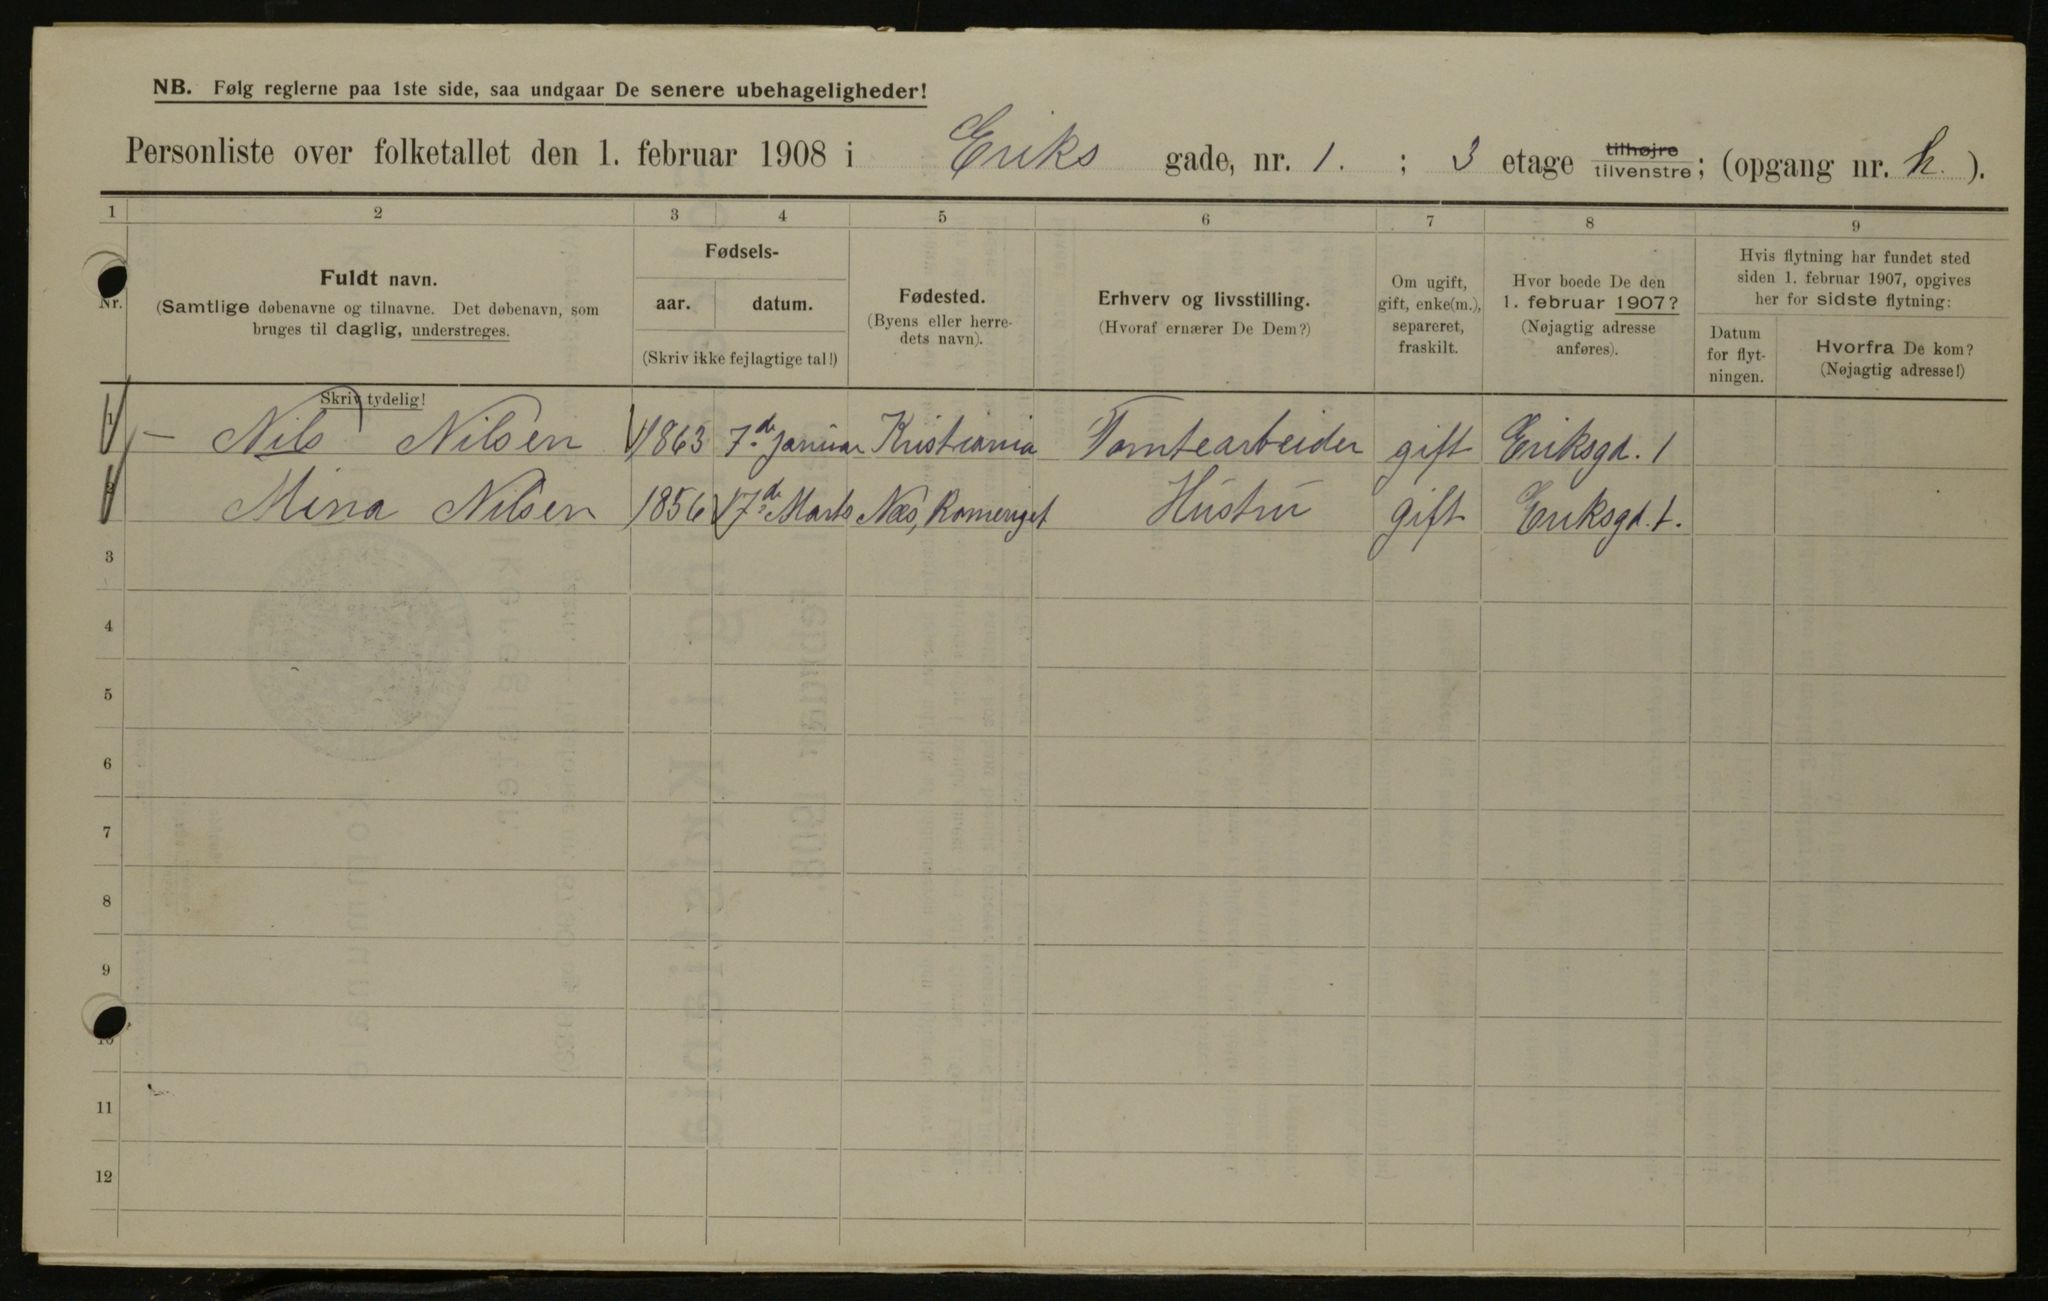 NB. Følg reglerne paa 1ste side, saa undgaar De senere ubehageligheder!
Personliste over folketallet den 1. februar 1908 i Eriks gade, nr. 1. ; 3 etage tilhøjre tilvenstre; (opgang nr. h. ).
1 2 3 4 5 6 7 8 9
Nr.
Fuldt navn.
(Samtlige døbenavne og tilnavne. Det døbenavn, som
bruges til daglig, understreges.
Skriv tydelig!
Fødsels-
aar. datum.
(Skriv ikke fejlagtige tal!)
Fødested.
(Byens eller herre-
dets navn).
Erhverv og livsstilling.
(Hvoraf ernærer De Dem?)
Om ugift,
gift, enke(m.),
separeret,
fraskilt.
Hvor boede De den
1. februar 1907?
(Nøjagtig adresse
anføres).
Hvis flytning har fundet sted
siden 1. februar 1907, opgives
her for sidste flytning:
Datum
for flyt-
ningen.
Hvorfra De kom?
(Nøjagtig adresse!)
Nils Nilsen 1863 7de Januar Kristiania Tomtearbeider gift Eriksgd. 1
Mina Nilsen 1856 17de Marts Næs, Romeriget Hustru gift Eriksgd. 1.
3
4
5
6
7
8
9
10
11
12